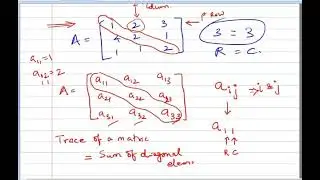 Column.
1 2 3
→ Row
A = 4 2 1
1 1 2
3 = 3
R = C.
a11 = 1
a12 = 2
a11 a12 a13
A = a21 a22 a23
a31 a32 a33
aij ⇒ i & j
a11
R C
Trace of a matrix
= Sum of diagonal
elem